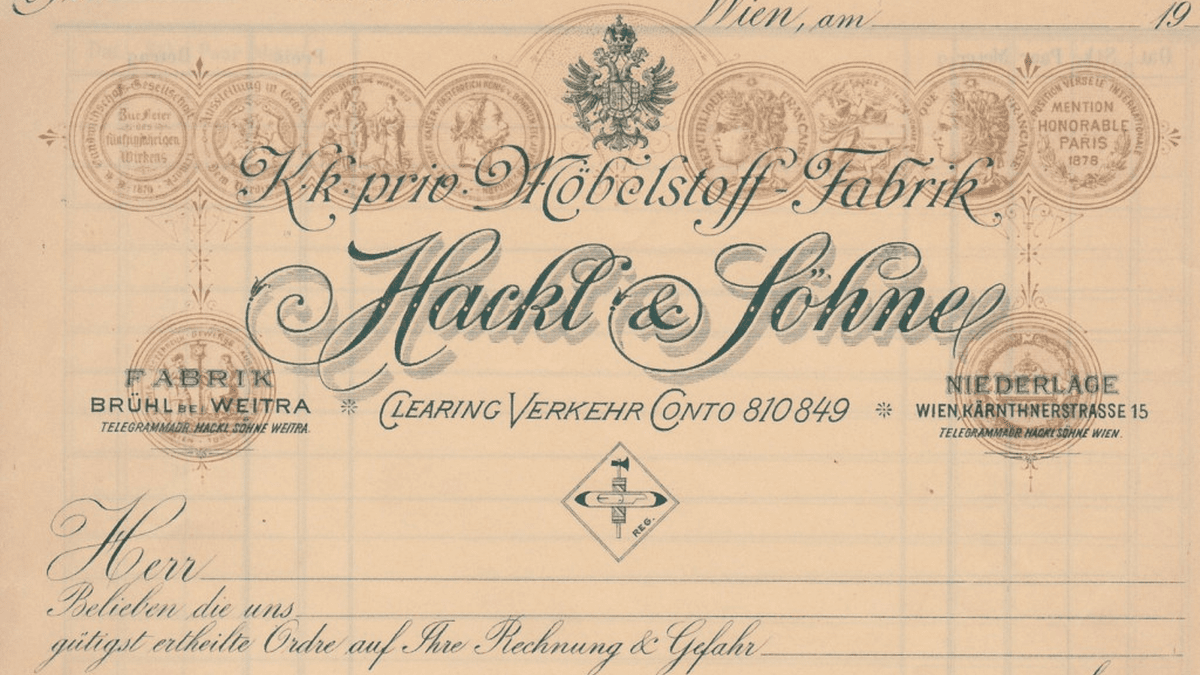 Wien, am 19
Landwirthschafts-Gesellschaft
Zur Feier
fünfzigjährigen
Wirkens
Ausstellung in Graz
FRANÇAISE
FRANÇAISE
MENTION
HONORABLE
PARIS
1878
K.k. priv. Möbelstoff-Fabrik
Hackl & Söhne
FABRIK
BRÜHL BEI WEITRA
TELEGRAMMADR. HACKL SÖHNE WEITRA.
CLEARING VERKEHR CONTO 810849
NIEDERLAGE
WIEN, KÄRNTHNERSTRASSE 15
TELEGRAMMADR. HACKL SÖHNE WIEN.
REG.
Herr
Belieben die uns
gütigst ertheilte Ordre auf Ihre Rechnung & Gefahr